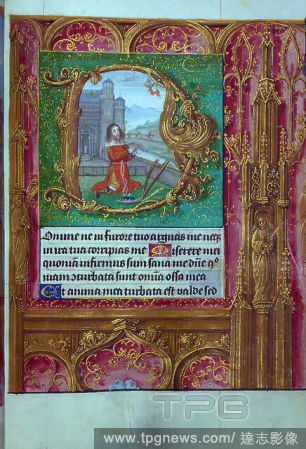 Domine ne in furore tuo arguas me neq3
in ira tua corripias me Miserere mei
quoniã infirmus sum sana me dñe qo
niam cõturbata sunt omĩa ossa mea
Et anima mea turbata est valde sed
TPG
www.tpgnews.com / 達志影像